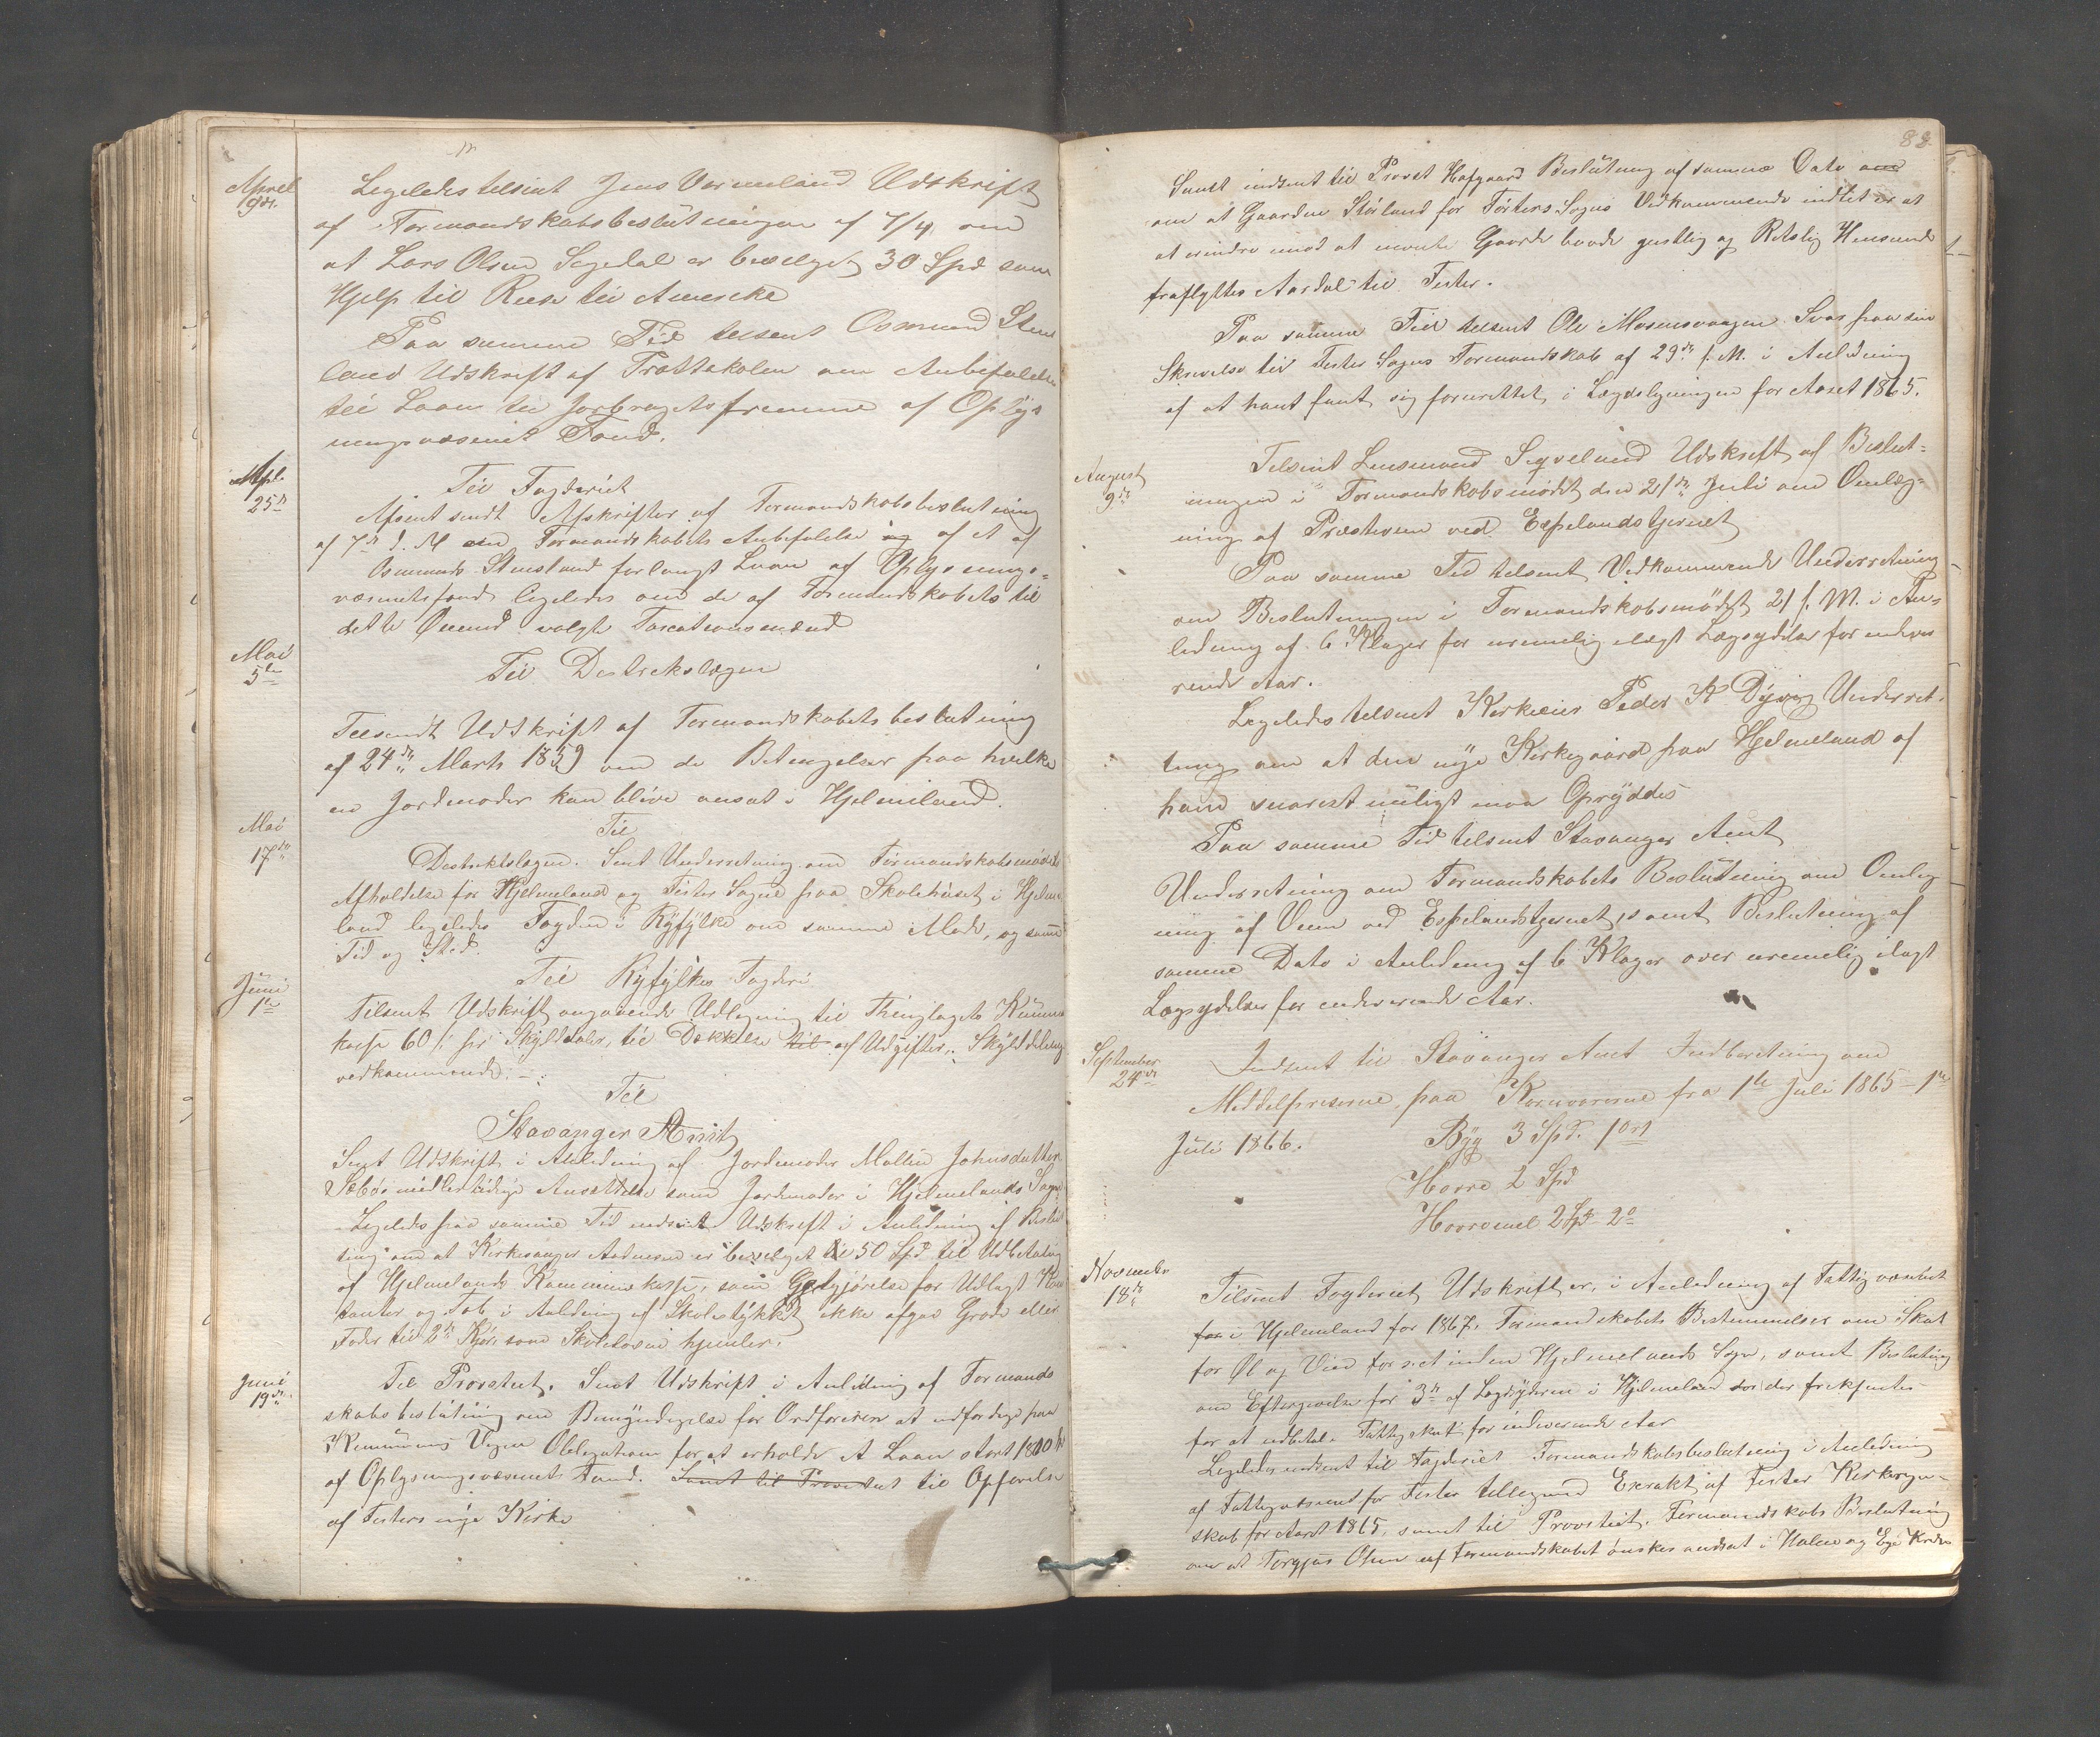 Aprel
9de
Legeledes telsent Jens Vormeland Udskrift
af Formandskabsbeslutningen af 7/4 om
at Lars Olsen Segedal er bevelget 30 Spd som
Hjelp til Reise til Amereka
Paa samme Tid telsent Osmund Stens
land Udskreft af Prottokolen om Anbefalelse
til Laan til Jorbrugets fremme af Oplys
ningsvæsenets Fond.
Apl.
25de
Til Fogderiet
Afsent sendt Afskrifter af Formandskabsbeslutning
af 7de d. M om Formandskabets Anbefalelse og af et af
Osmunds Stensland forlangt Laan af Oplysnings=
væsenets fond legeledes om de af Formandskabets til
dette Øiemed valgte Taxationsmænd
Mai
5te
Til Destrekslægen
Telsendt Udskrift af Formandskabets beslutning
af 24de Marts 1859 om de Betingelser paa hvilke
en Jordemoder kan blive ansat i Hjelmeland.
Mai
17de
Til
Destrektslægen. Sent Underretning om Formandskabsmødets
Afholdelse for Hjelmeland og Fister Sogne paa Skolehuset i Hjelme
land legeledes Fogden i Ryfylke om samme Møde, og samme
Tid og Sted.
Juni
1te
Til Ryfylkes Fogderi
Tilsent Udskrift angaaende Udlegning til Thinglagets Kumune
kasse 60 s: pr Skylddaler, til Dækkelse til af Udgifter, Skylddeling
vedkommende. –
Til
Stavanger Amt
Sent Udskrift i Anledning af Jordemoder Mallin Johnsdatter
Sæbøs medlertidige Ansættelse som Jordemoder i Hjelmelands Sogn
Legeledes paa samme Tid indsent Udskreft i Anledning af Beslut
ning om at Kirkesanger Asbursen er bevelget til 50 Spd til Udbetaling
af Hjelmelands Kommunekasse, som Godtgjørelse for Udlagt Kon
tanter og Tab i Anledning af Skolestykket ikke afgav Grøde eller
Foder til 2de Kjør som Skoleloven hjemler.
Juni
19de
Til Provstiet. Sent Udskrift i Anledning af Formands
skabs beslutning om Bemyndigelse for Ordføreren at udfærdige paa
Kommunens Vegne Obligationen for at erholde et Laan stort 1800 Spd
af Oplysningsvæsenets Fund. Samt til Provstiet til Opførelse
af Fisters nye Kirke
83
Samt indsent til Provst Hofgaard Beslutning af samme Dato om
om at Gaarden Størland for Førters Sogns Vedkommende indtet er at
at erindre imod at nævnte Gaarde baade gestlig og Retslig Henseende
fraflyttes Aardal til Fister.
Paa samme Tid telsent Ole Mosensvaagen Svar paa sin
Skrevelse til Fister Sogns Formandskab af 29de f. M. i Anledning
af at hant fant sig forurettet i Lægdslegningen for Aaret 1865.
August
9de
Telsent Lensmand Segvelund Udskreft af Beslut=
ningen i Formandskabsmødet den 21de Juli om Omlæg=
ning af Præsteveien ved Espelandstjernet
Paa samme Tid telsent Vedkommende Underretning
om Beslutningen i Formandskabsmødet 21 f. M. i An=
ledning af 6 Klager for uremelig ilagt Lægsydelse for indevæ
rende Aar.
Legeledes telsent Kerkeeier Peder K Dyvig Underret=
tning om at den nye Kirkegaard paa Hjelmeland af
ham snarest muligt maa Opryddes
Paa samme Tid telsent Stavanger Amt
Underretning om Formandskabets Beslutning om Omlæg
ning af Veien ved Espelandstjernet, samt Beslutning af
samme Dato i Anledning af 6 Klager over uremelig ilagt
Lægsydelser for indeværende Aar.
September
24de
Indsent til Stavanger Amt Indberetning om
Meddelpriserne, paa Kornvarerne fra 1te Juli 1865 – 1te
Juli 1866.
Byg 3 Spd. 1 ort
Havre 2 Spd
Havremel 2 Spd 2 o
November
18de
Tilsent Fogderiet Udskrifter, i Anledning af Fattigvæsenet
for i Hjelmeland for 1867. Formandskabets Bestemmelser om Skat
for Øl og Viin forret inden Hjelmelands Sogn, samt Beslutning
om Eftergivelse for 3de af Lægdyderne i Hjelmeland som der frekjentes
for at udbetale Fattigskat for indeværende Aar
Legeledes indsent til Fogderiet Formandskabsbeslutning i Anledning
af Fattigvæsenet for Fister tillegemed Exrakt af Fister Kerkeregn=
skab for Aaret 1865, samt til Provstiet. Formandskabs Beslutning
om at Torgjus Olsen af Formandskabet ønskes andsat i Halen og Eie Kreds